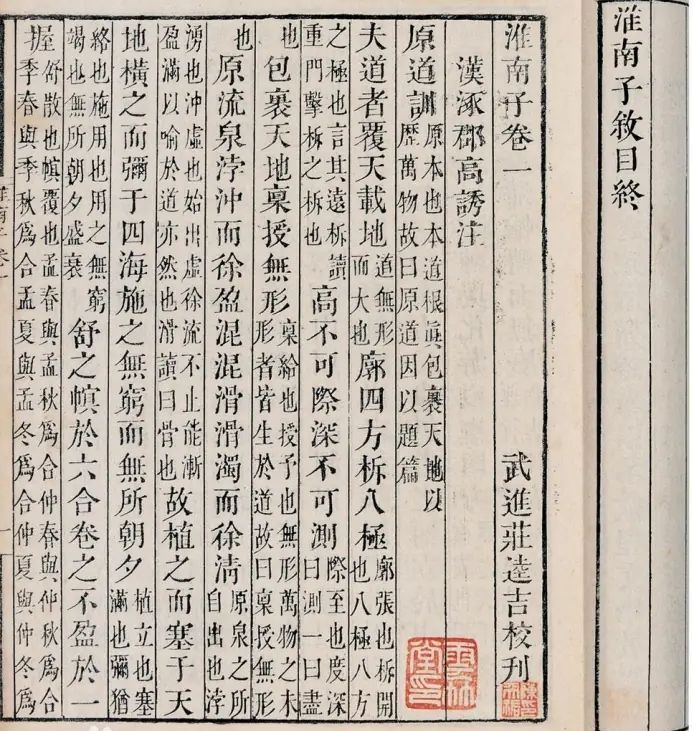 淮南子敘目終
淮南子卷一 武進莊逵吉校刊
漢涿郡高誘注
原道訓 原本也本道根眞包裹天地以歷萬物故曰原道因以題篇
夫道者覆天載地 道無形而大也 廓四方柝八極 廓張也柝開也八極八方
之極也言其遠柝讀重門擊柝之柝也 高不可際深不可測 際至也度深曰測一曰盡
也 包裹天地稟授無形 稟給也授予也無形萬物之未形者皆生於道故曰稟授無形
也 原流泉浡沖而徐盈混混滑滑濁而徐清 原泉之所自出也浡
湧也沖虛也始出虛徐流不止能漸盈滿以喻於道亦然也滑讀曰骨也 故植之而塞于天
地橫之而彌于四海施之無窮而無所朝夕 植立也塞滿也彌猶
絡也施用也用之無窮竭也無所朝夕盛衰 舒之幎於六合卷之不盈於一
握 舒散也幎覆也孟春與孟秋爲合仲春與仲秋爲合季春與季秋爲合孟夏與孟冬爲合仲夏與仲冬爲